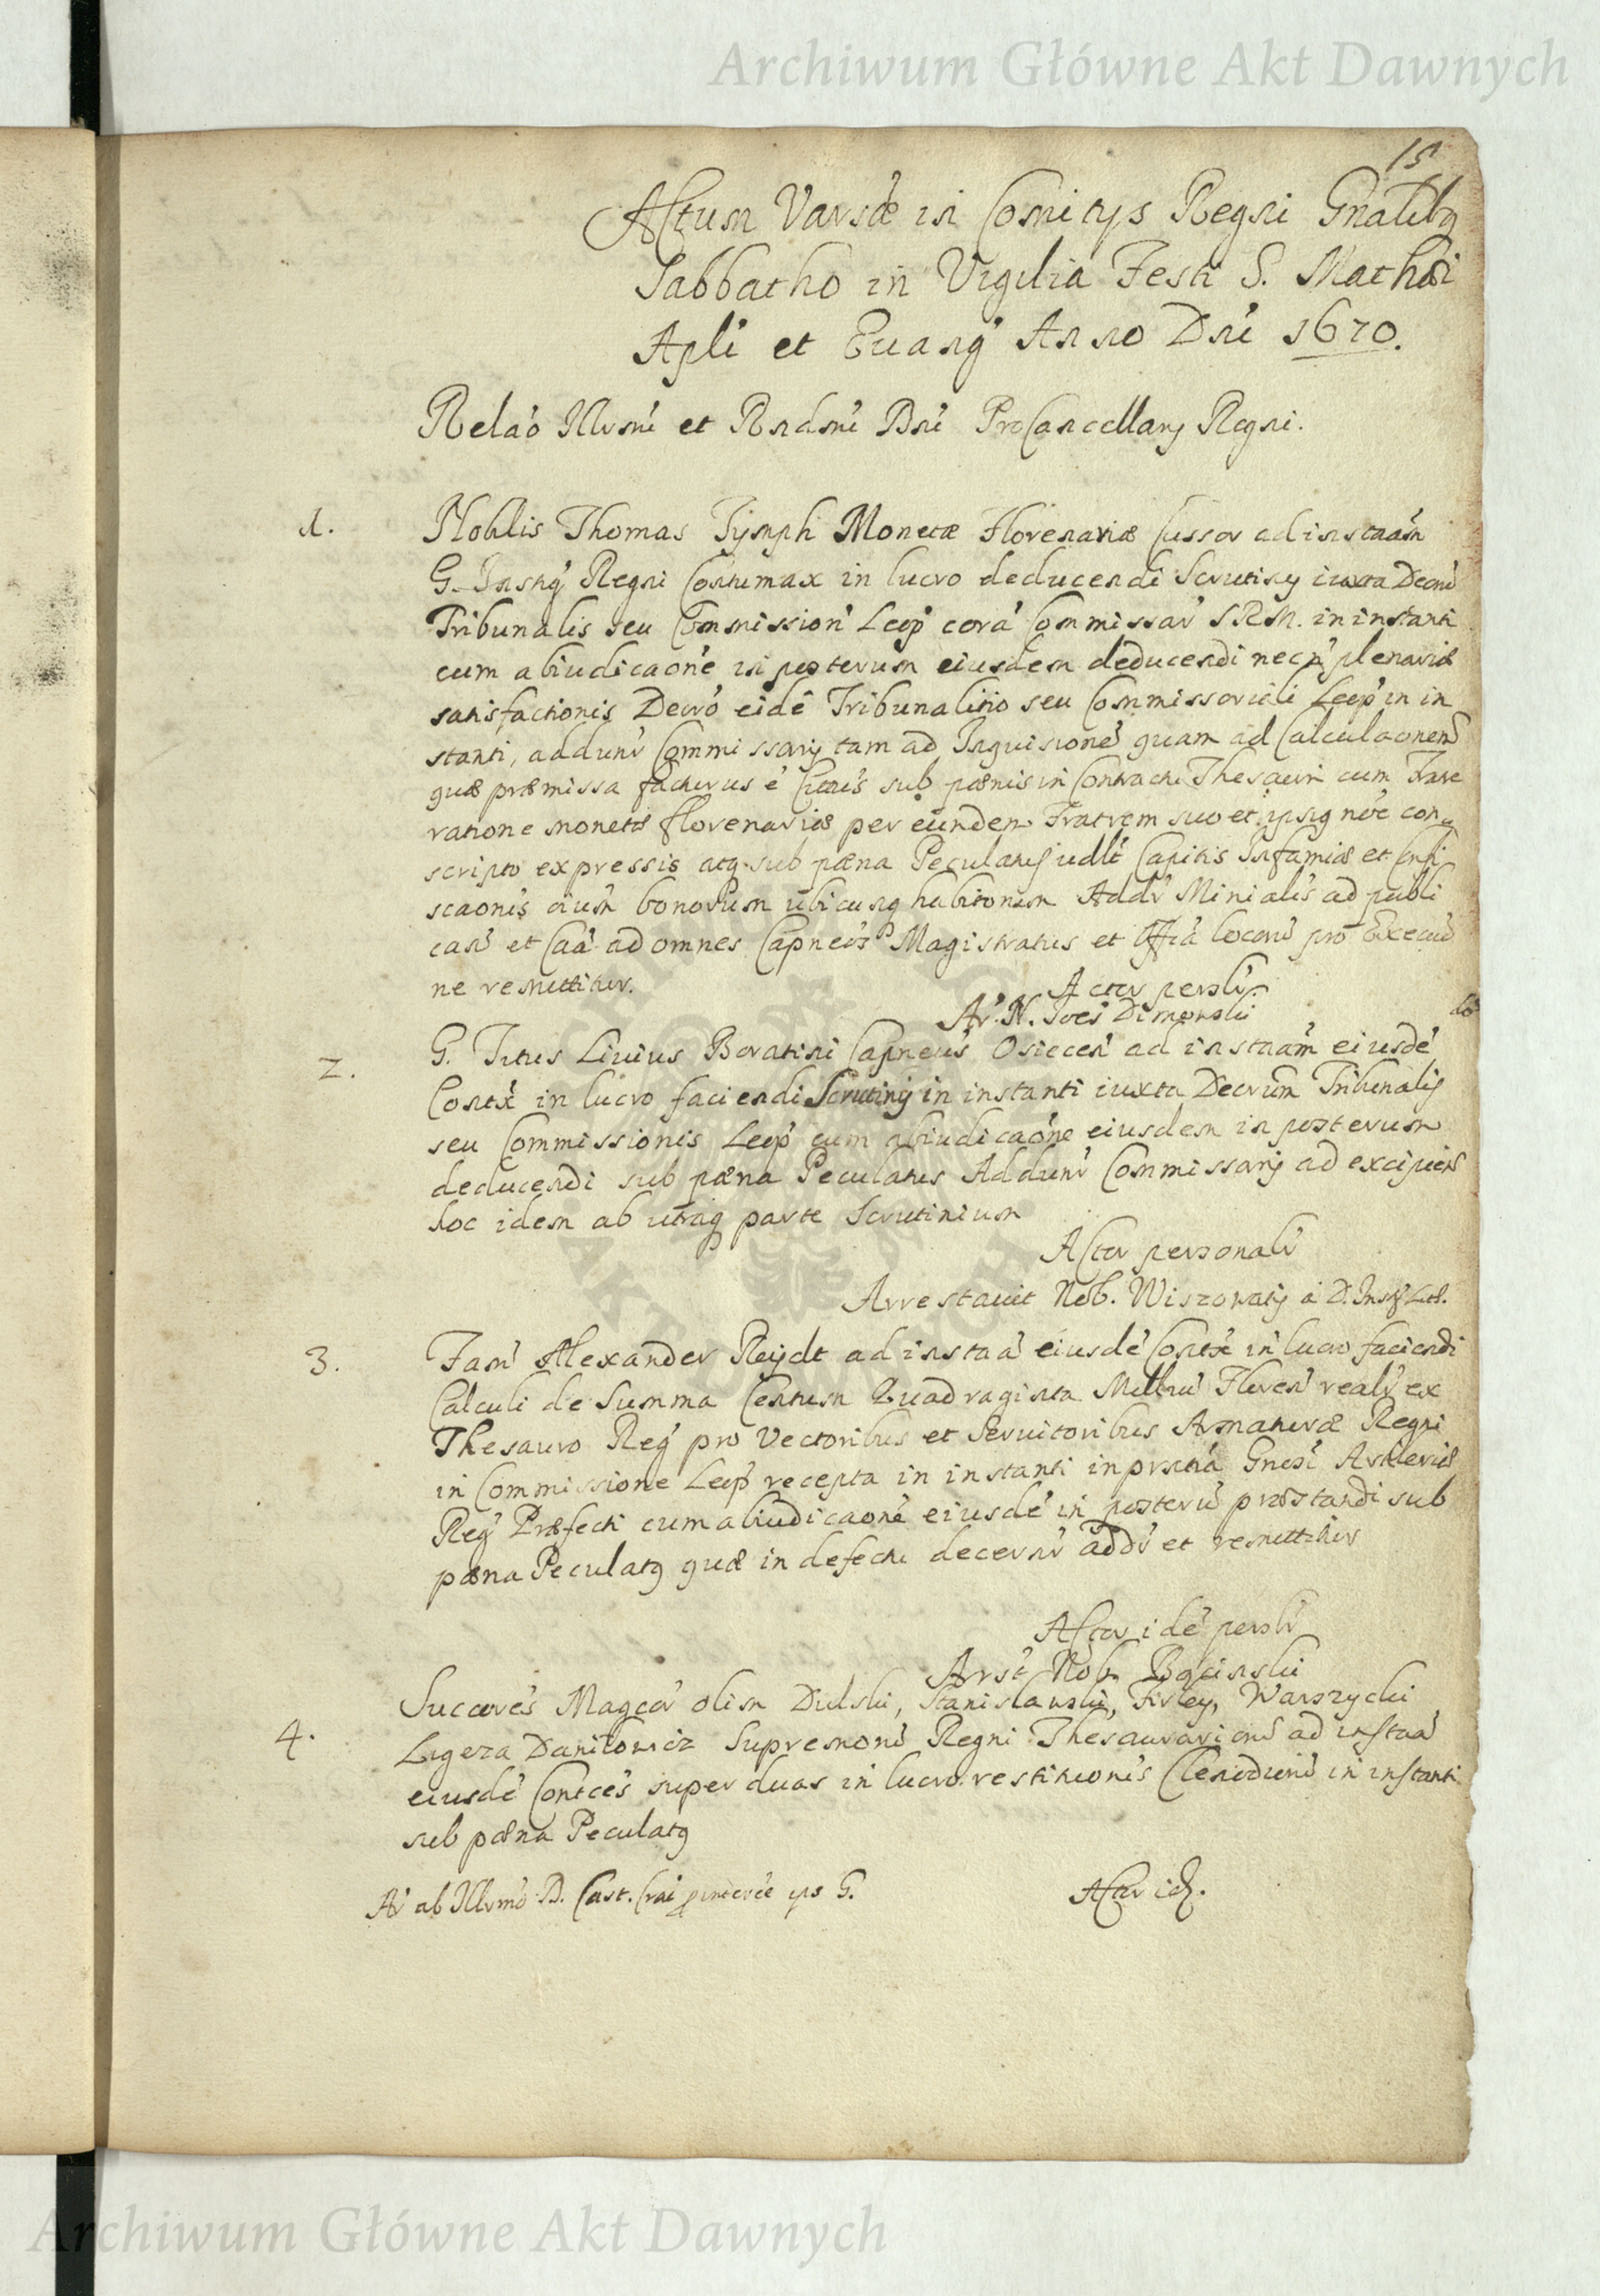 Archiwum Główne Akt Dawnych
15
Actum Varsae in Comitys Regni Gnalibq
Sabbatho in Vigilia Festi S. Mathæi
Apli et Euang Anno Dni 1670.
Relao Illvmi et Rndmi Dni ProCancellary Regni.
1.
Nobilis Thomas Tymph Monetæ Florenariæ Cussor ad instaam
G. Instig Regni Contumax in lucro deducendi Scrutiny iuxta Decru
Tribunalis seu Commission Leop corà Commissar SRM. in instanti
cum abiudicaone in posterum eiusdem deducendi necn plenariæ
satisfactionis Decro eidē Tribunalitio seu Commissoriali Leop in in
stanti, addunr Commissary tam ad Inquisionē quam ad Calculaonem
quæ præmissa facturus ē sub pænis in Contractu Thesauri cum Fratre
ratione monetæ florenariæ per eundem Fratrem suo et ipsiq nōe con
scripto expressis atq sub pæna Peculatus Capitis Infamiæ et Confi
scaonis oium bonorum ubicunq habitorum Addr Minialis ad publi
can et Caa ad omnes Capneos Magistratus et Offia locoru pro Executio
ne remittitur.
Actor persolr.
Ar. N. Ioes Dimonski
2.
G. Titus Liuius Boratini Capneus Osiecen ad instaam eiusdē
Contx in lucro faciendi Scrutiny in instanti iuxta Decrum Tribunalis
seu Commissionis Leop cum abiudicaone eiusdem in posterum
deducendi sub pæna Peculatus Addunr Commissary ad excipien
hoc idem ab utraq parte Scrutinium
Actor personalr
Arrestauit Nob. Wiszowaty a D. Instig Lit.
3.
Fam Alexander Reydt ad instaa eiusdē Contx in lucro faciendi
Calculi de Summa Centum Quadraginta Milliu Floren realr ex
Thesauro Reg pro Vectoribus et Seruitoribus Armaturæ Regni
in Commissione Leop recepta in instanti in prntia Gnosi Artileriæ
Reg Præfecti cum abiudicaone eiusdē in posteru præstandi sub
pæna Peculatq quæ in defectu decernr addr et remittitur
Actor idē persolr
Arst Nob.
4.
Succores Magcor olim Dulski, Stanislawski, Firley, Warszycki
Ligeza Danilowicz Supremoru Regni Thesaurarioru ad instaa
eiusdē Contces super duas in lucro restitutionis Clenodioru in instanti
sub pæna Peculatq
Ar ab Illvmo D. Cast. Crai G.
Actor id.
Archiwum Główne Akt Dawnych